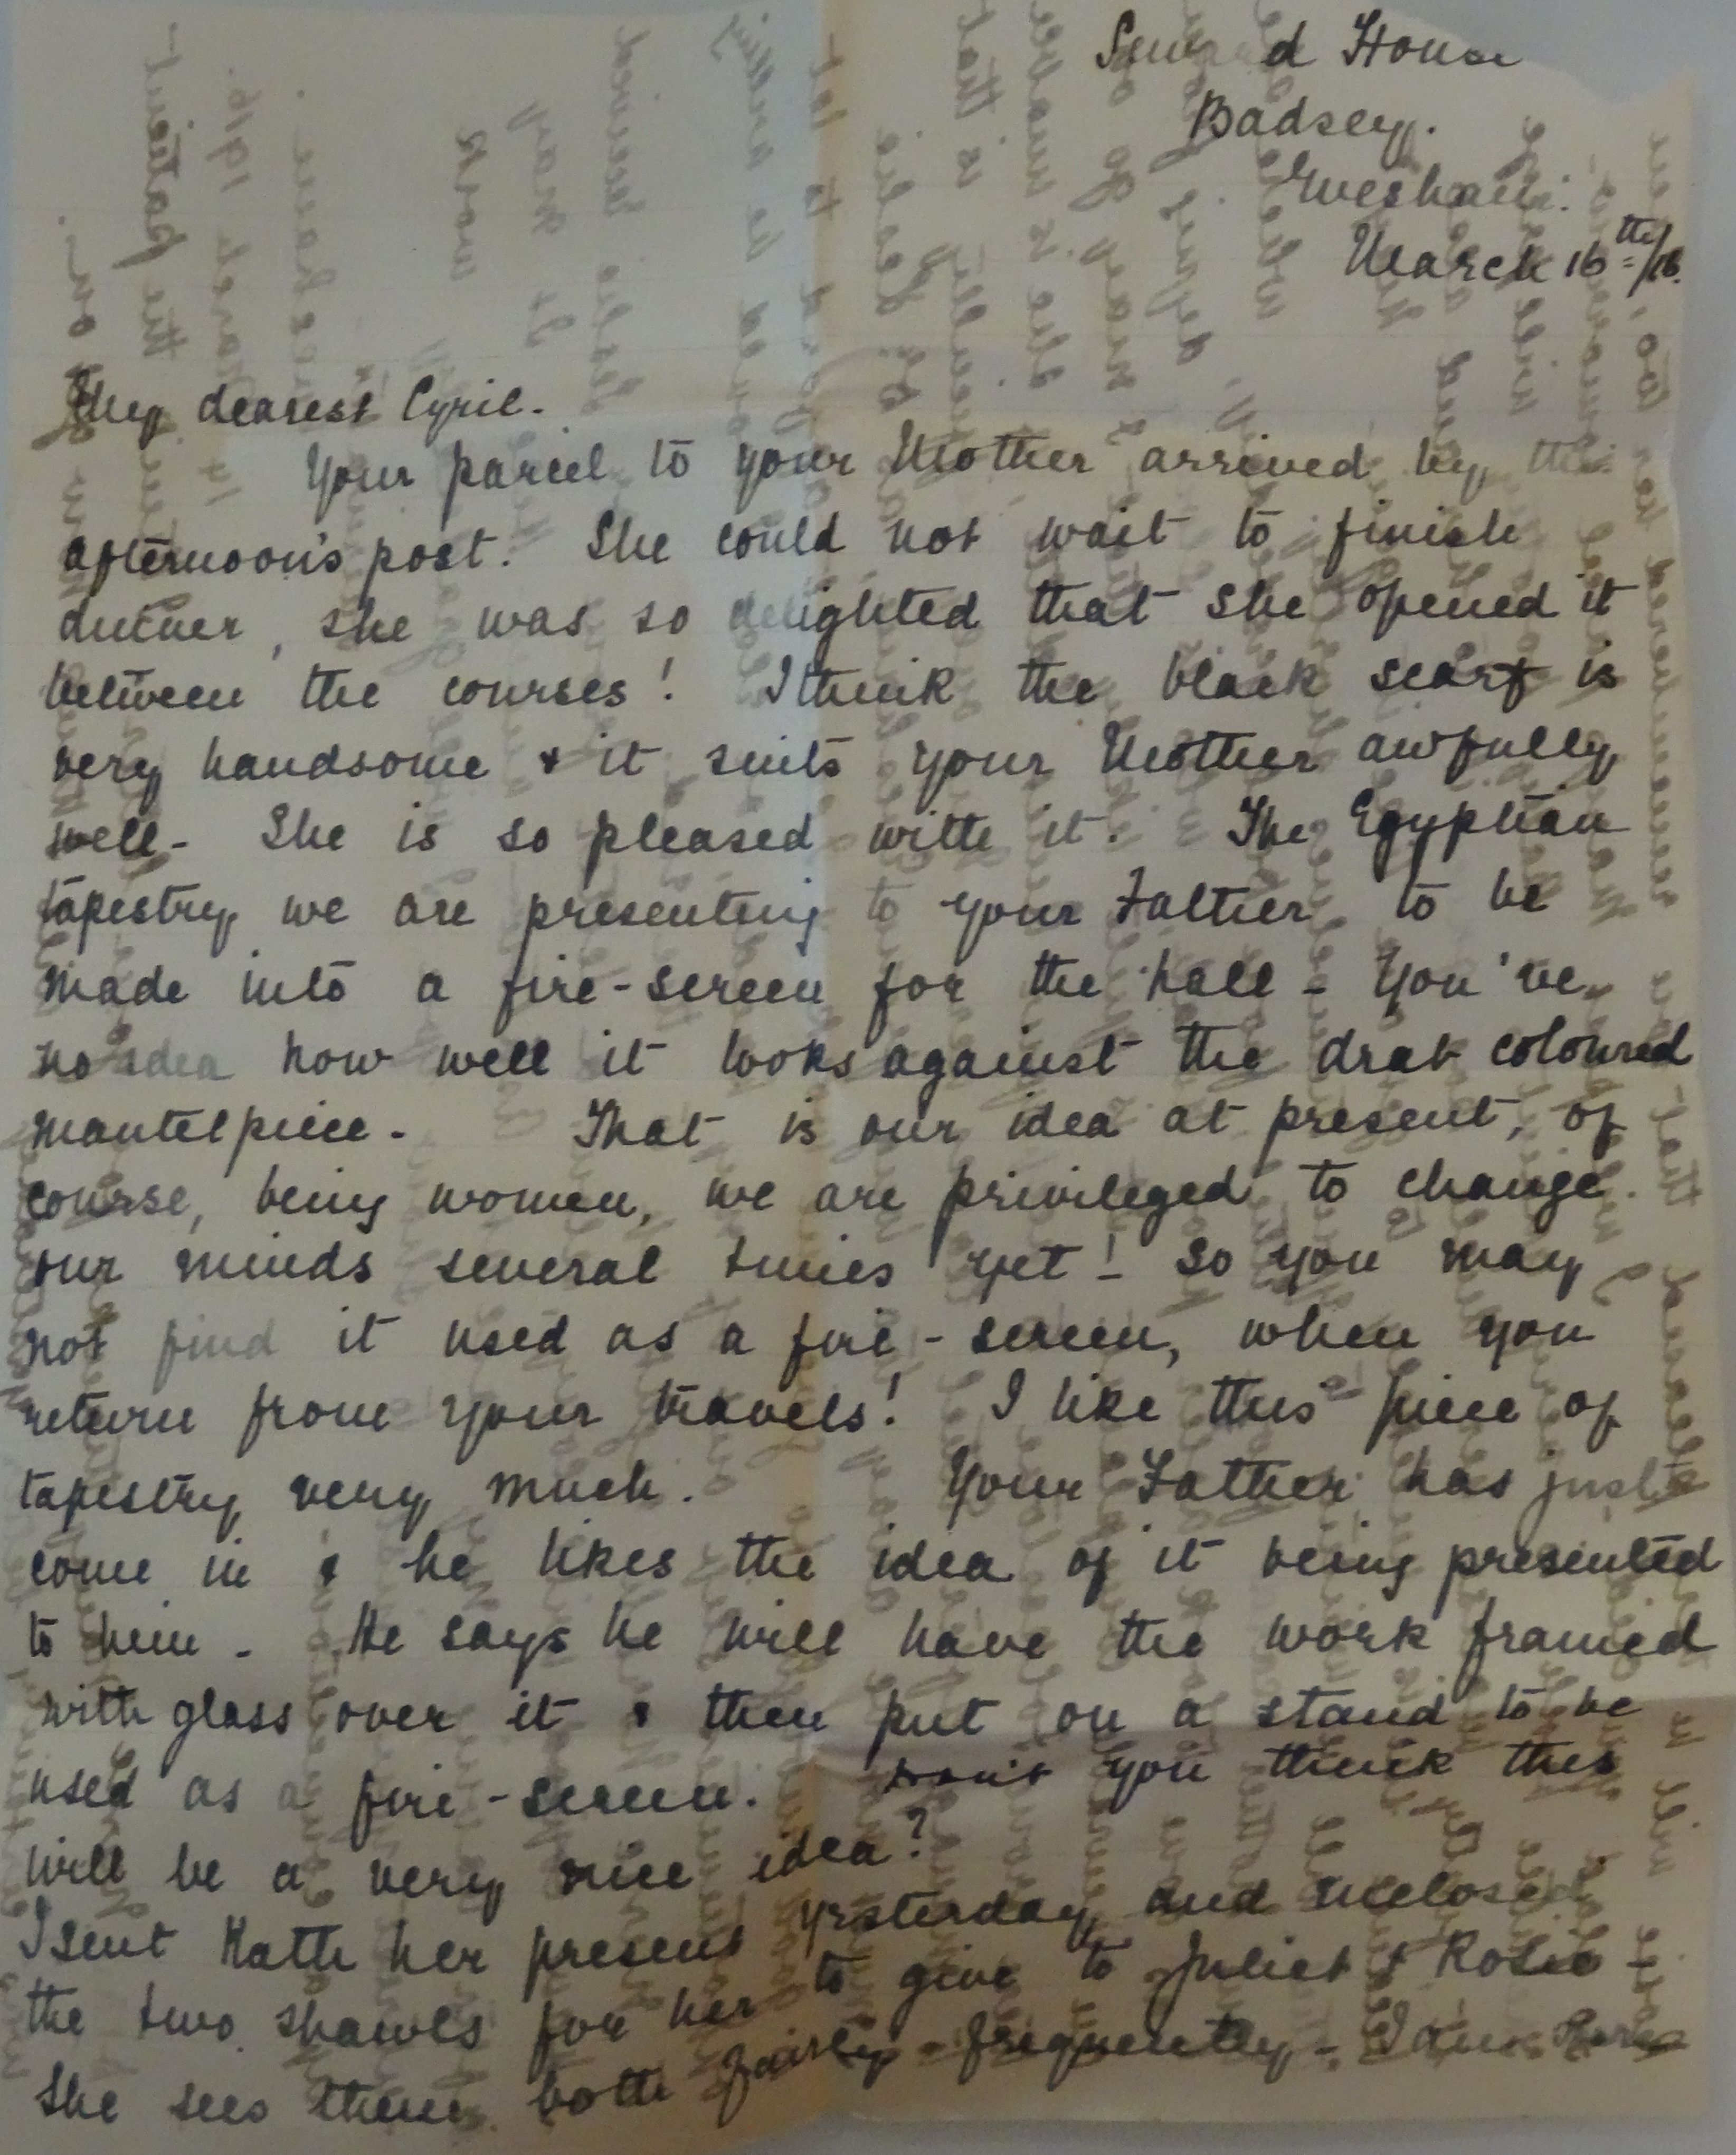 Seward House
Badsey.
Evesham.
March 16th/16.
My dearest Cyril.
Your parcel to your Mother arrived by the
afternoon's post. She could not wait to finish
dinner, she was so delighted that she opened it
between the courses! I think the black scarf is
very handsome & it suits your Mother awfully
well - She is so pleased with it. The Egyptian
tapestry we are presenting to your Father to be
made into a fire-screen for the hall - You've
no idea how well it looks against the drab coloured
mantelpiece - That is our idea at present, of
course, being women, we are privileged to change
our minds several times yet! - so you may
not find it used as a fire-screen, when you
return from your travels! I like this piece of
tapestry very much. Your Father has just
come in & he likes the idea of it being presented
to him - He says he will have the work framed
with glass over it & then put on a stand to be
used as a fire-screen. Don't you think this
will be a very nice idea?
I sent Kath her present yesterday and enclosed
the two shawls for her to give to Juliet & Rosie -
She sees them both fairly frequently - I am sure